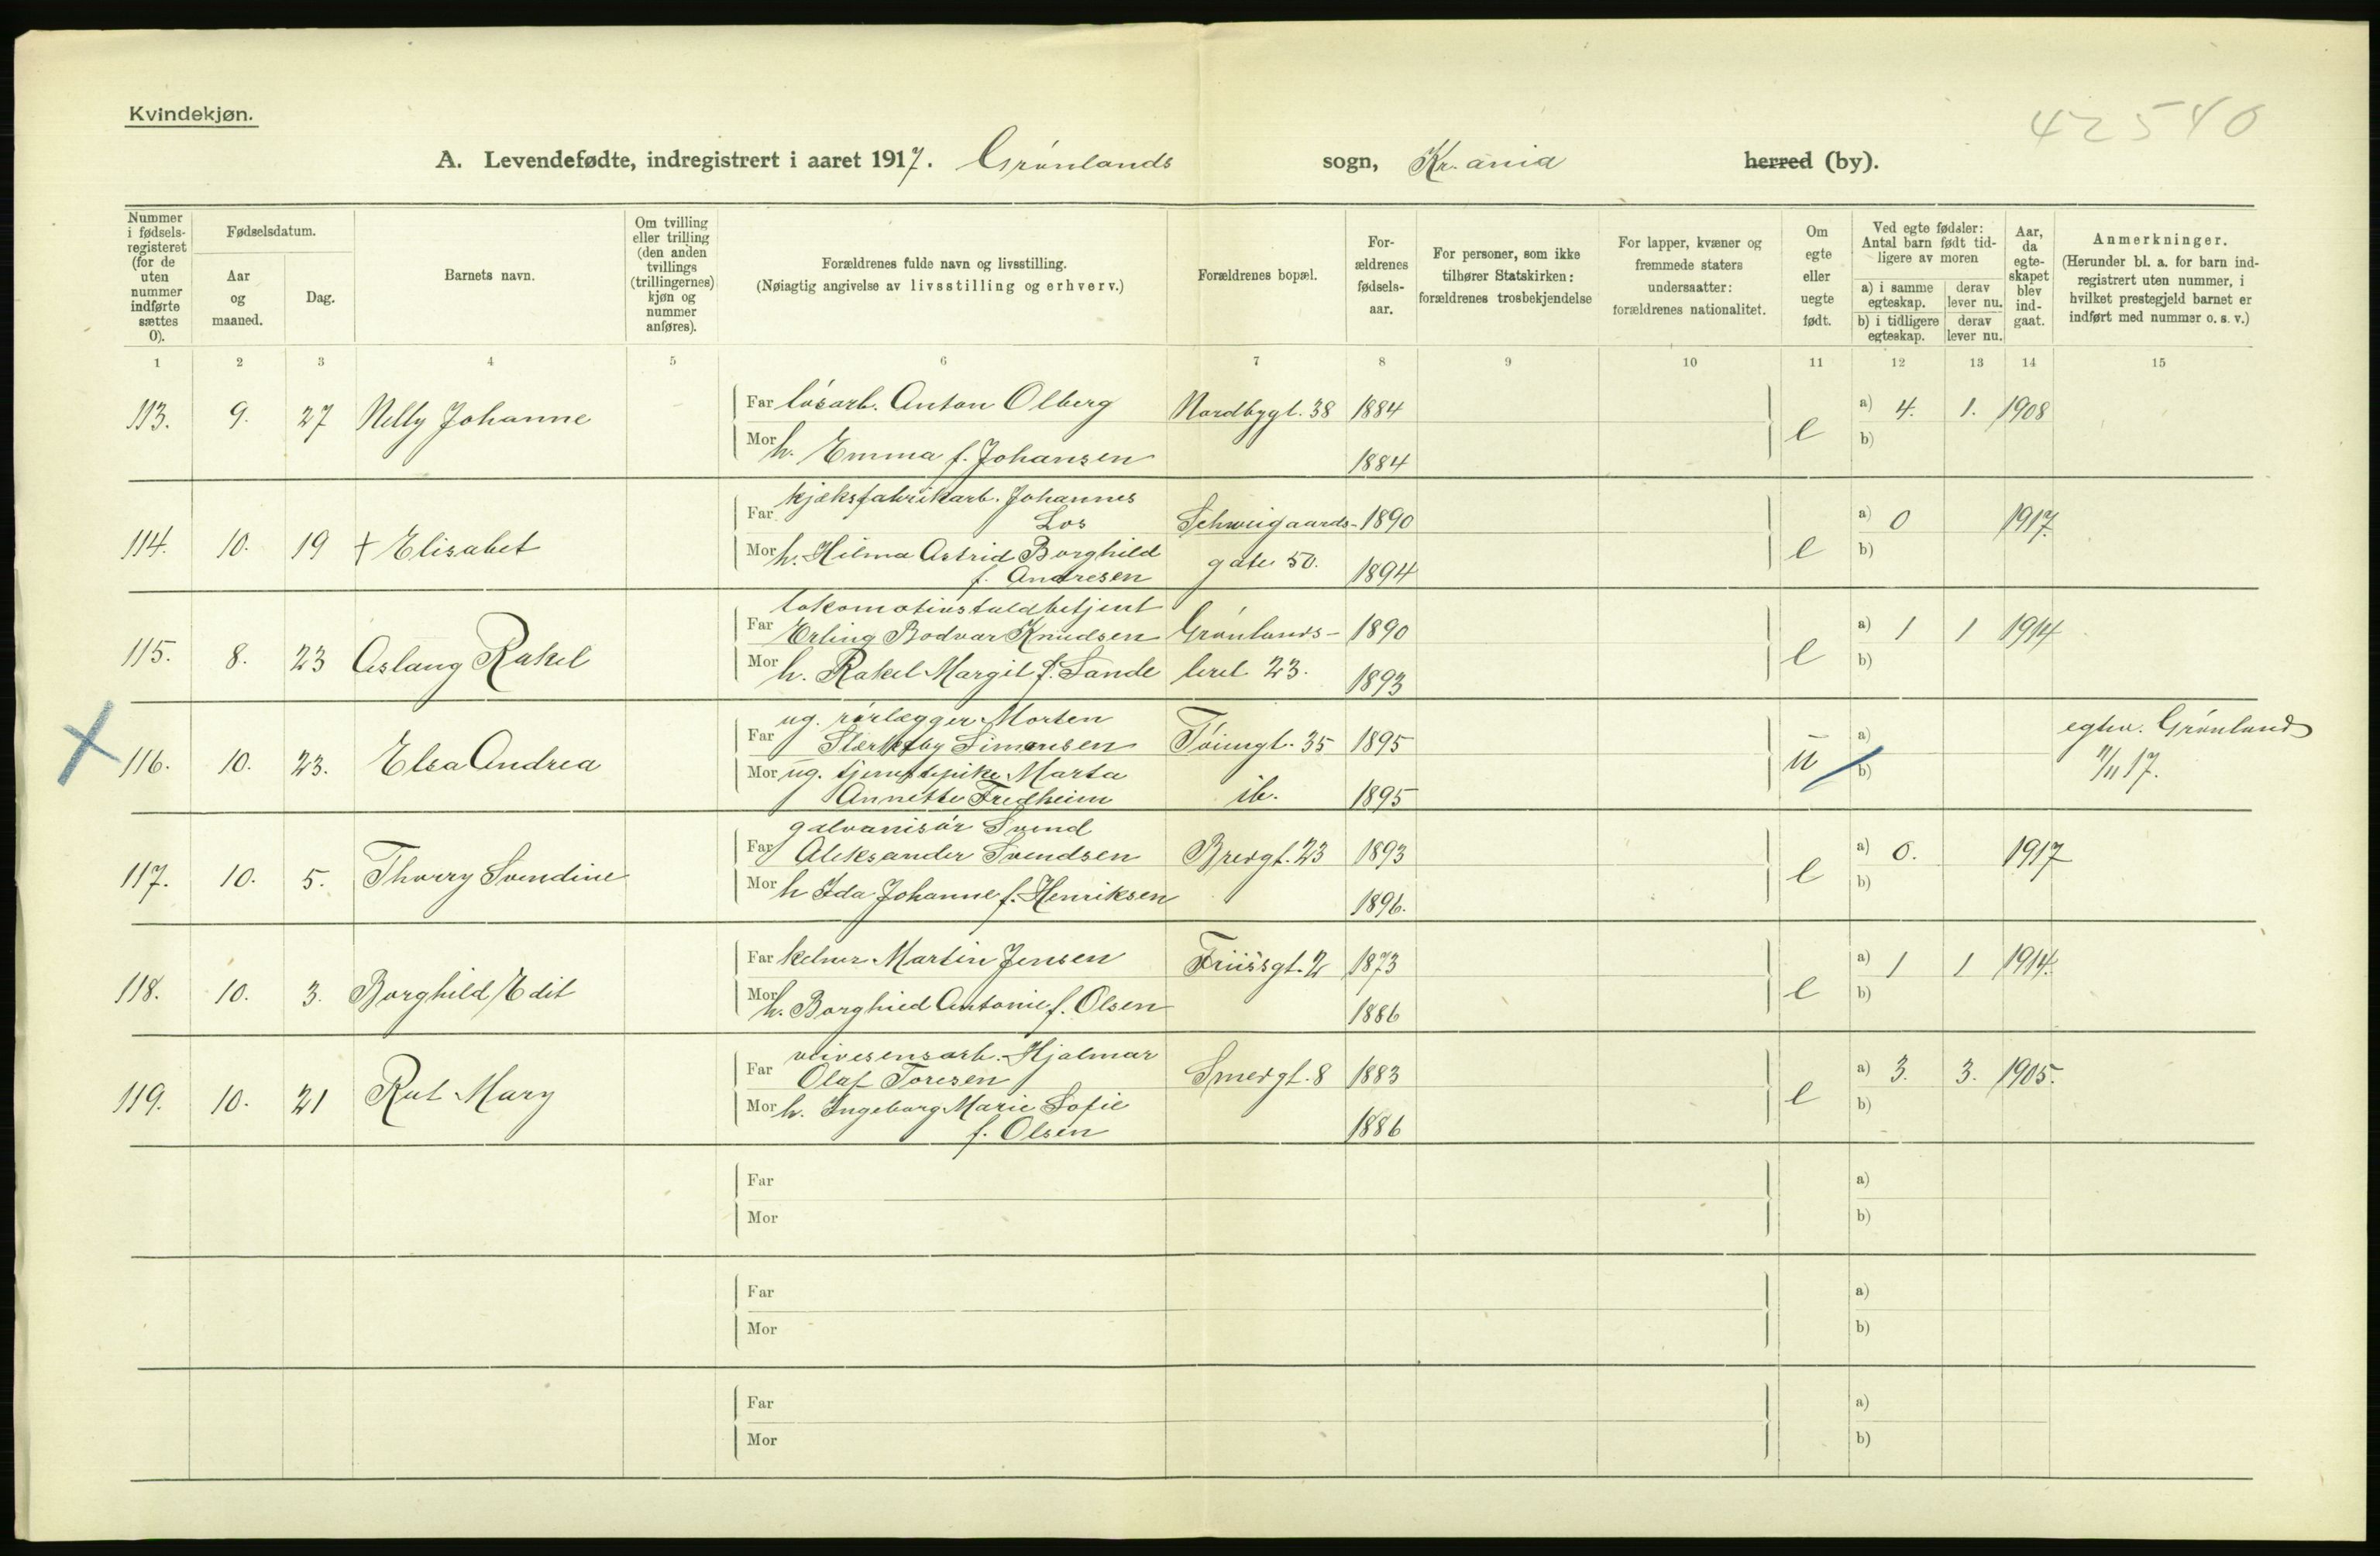 Kvindekjøn.
42540
A. Levendefødte, indregistrert i aaret 1917. Grønlands sogn, Kr.ania herred (by).
Nummer i fødselsregisteret (for de uten nummer indførte sættes 0).
Fødselsdatum.
Aar og maaned.
Dag.
Barnets navn.
Om tvilling eller trilling (den anden tvillings (trillingernes) kjøn og nummer anføres).
Forældrenes fulde navn og livsstilling.
(Nøiagtig angivelse av livsstilling og erhverv.)
Forældrenes bopæl.
Forældrenes fødselsaar.
For personer, som ikke tilhører Statskirken: forældrenes trosbekjendelse
For lapper, kvæner og fremmede staters undersaatter: forældrenes nationalitet.
Om egte eller uegte født.
Ved egte fødsler: Antal barn født tidligere av moren
a) i samme egteskap.
derav lever nu.
b) i tidligere egteskap.
derav lever nu.
Aar, da egteskapet blev indgaat.
Anmerkninger.
(Herunder bl. a. for barn indregistrert uten nummer, i hvilket prestegjeld barnet er indført med nummer o. s. v.)
1 2 3 4 5 6 7 8 9 10 11 12 13 14 15
113. 9. 27 Nelly Johanne
Far løsarb. Anton Olberg Nordbygt. 38 1884
Mor h. Emma f. Johansen 1884
e a) 4. 1. 1908
b)
114. 10. 19 + Elisabet
kjæksfabrikarb. Johannes
Far Los Schweigaards- 1890
Mor h. Hilma Astrid Borghild gate 50.
f. Andresen 1894
e a) 0 1917.
b)
115. 8. 23 Aslaug Rakel
lokomotivstaldbetjent
Far Erling Bodvar Knudsen Grønlands- 1890
Mor h. Rakel Margit f. Sande leret 23. 1893
e a) 1 1 1914
b)
116. 10. 23. Elsa Andrea
ug. rørlægger Morten
Far Stærkeby Simensen Tøiengt. 35 1895
Mor ug. tjenestepike Marta
Annette Fredheim ib. 1895
u a)
b)
egtev. Grønland
11/11 17.
117. 10. 5. Thorry Svendine
galvanisør Svend
Far Aleksander Svendsen Breigt. 23 1893
Mor h Ida Johanne f. Henriksen 1896.
e a) 0. 1917
b)
118. 10. 3. Borghild Edit
Far kelner Martin Jensen Friisgt. 2 1873
Mor h. Borghied Antonie f. Olsen 1886
e a) 1 1 1914.
b)
119. 10. 21 Rut Mary
veivesensarb. Hjalmar
Far Olaf Toresen Smedgt. 8 1883
Mor h. Ingeborg Marie Sofie
f. Olsen 1886
e a) 3. 3. 1905.
b)
Far a)
Mor b)
Far a)
Mor b)
Far a)
Mor b)